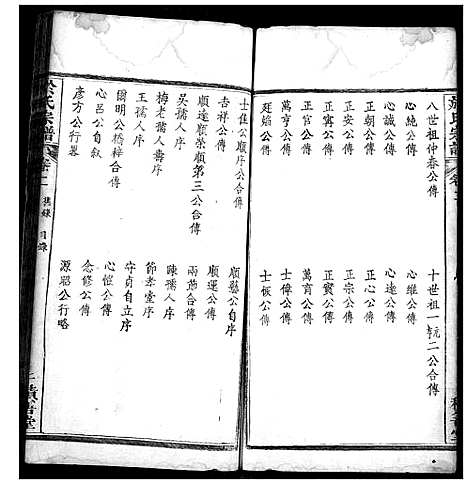 八世祖仲春公傳
十世祖一
二公合傳
心純公傳
心維公傳
心誠公傳
心達公傳
正朝公傳
正心公傳
正公傳
正宗公傳
正寓公傳
正寳公傳
正官公傳
萬育公傳
萬亨公傳
士偉公傳
廷焰公傳
士恢公傳
士佳公順序公合傳
順縣公自序
吉祥公傳
順運公傳
順達順榮順第三公合傳
兩爺公傳
吳孺人序
陳孺人序
梅老孺人壽序
節孝堂序
王孺人序
守貞自立序
爾明公橋梓合傳
心愷公傳
心呂公自傳
念修公傳
彥方公行畧
源昭公行略
氏宗譜
卷一
目錄